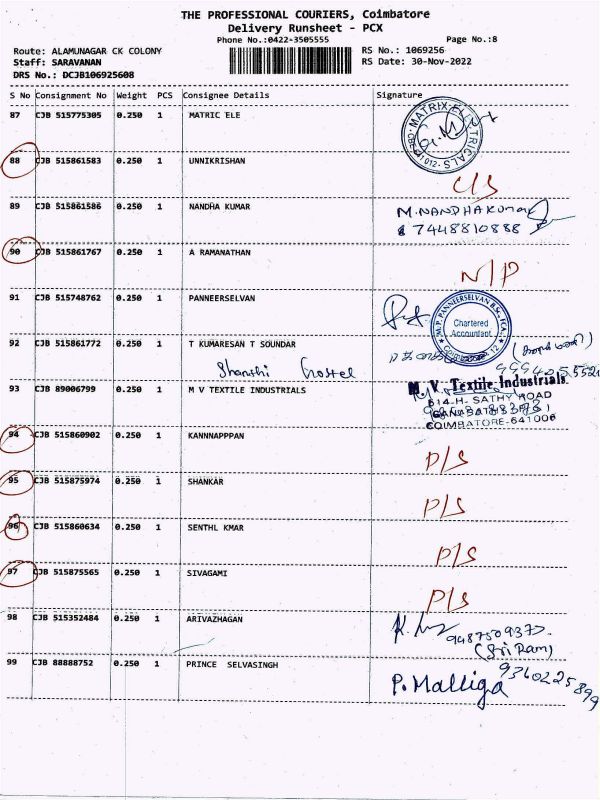 THE PROFESSIONAL COURIERS, Coimbatore
Delivery Runsheet - PCX
Phone No.:0422-3505555 Page No.:8
Route: ALAMUNAGAR CK COLONY RS No.: 1069256
Staff: SARAVANAN RS Date: 30-Nov-2022
DRS No.: DCJB106925608
S No Consignment No Weight PCS Consignee Details Signature
87 CJB 515775305 0.250 1 MATRIC ELE
MATRIX ELECTRICALS
88 CJB 515861583 0.250 1 UNNIKRISHAN
C/S
89 CJB 515861586 0.250 1 NANDHA KUMAR M.NANDHAKUMAR
7448810888
90 CJB 515861767 0.250 1 A RAMANATHAN
N/P
91 CJB 515748762 0.250 1 PANNEERSELVAN
M.P. PANNEERSELVAN B.Sc., FCA.,
Chartered
Accountant
92 CJB 515861772 0.250 1 T KUMARESAN T SOUNDAR
Shanthi hostel
93 CJB 89006799 0.250 1 M V TEXTILE INDUSTRIALS M. V. Textile Industrials
614-H- SATHY ROAD
COIMBATORE-641006
94 CJB 515860902 0.250 1 KANNNAPPPAN
D/S
95 CJB 515875974 0.250 1 SHANKAR
D/S
96 CJB 515860634 0.250 1 SENTHL KMAR
D/S
97 CJB 515875565 0.250 1 SIVAGAMI
D/S
98 CJB 515352484 0.250 1 ARIVAZHAGAN
(Sri Ram)
99 CJB 88888752 0.250 1 PRINCE SELVASINGH P. Malliga
9360225899